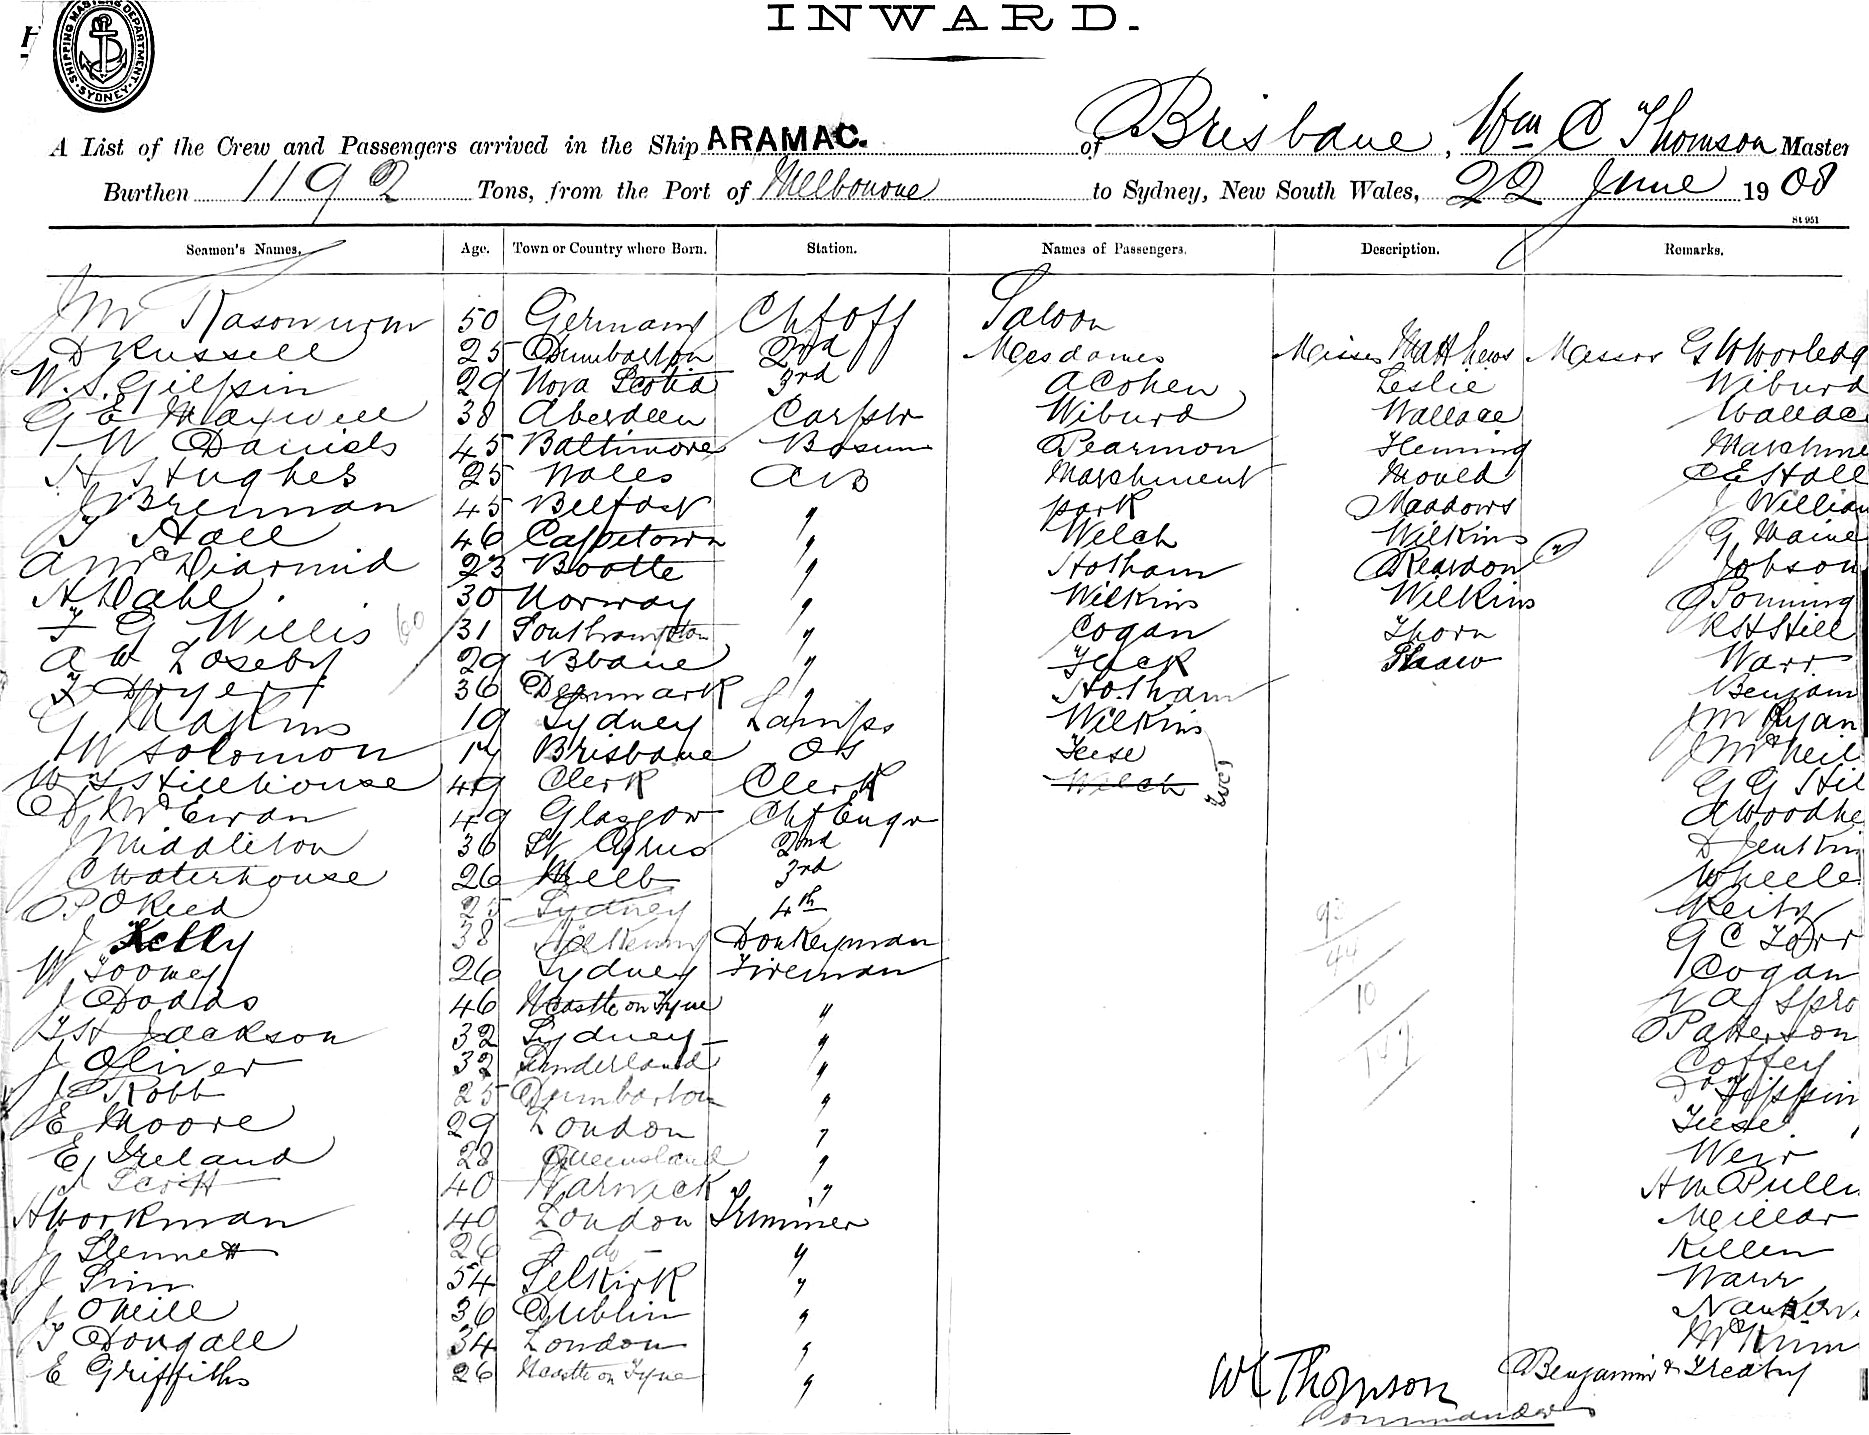 INWARD.
SHIPPING MASTERS DEPARTMENT SYDNEY
A List of the Crew and Passengers arrived in the Ship ARAMAC. of Brisbane, Wm C Thomson Master
Burthen 1192 Tons, from the Port of Melbourne to Sydney, New South Wales, 22 June 1908
St 951
Seamen's Names. Age. Town or Country where Born. Station. Names of Passengers. Description. Remarks.
50 Germany Ch foff Saloon
D Russell 25 Dumbarton 2nd Mesdames Misses Matthews Messrs G W
W. S. Gilpin 29 Nova Scotia 3rd A Cohen Leslie Wiburd
G E Maxwell 38 Aberdeen Carptr Wiburd Wallace Wallac
W Daniels 45 Baltimore Bosun Pearmon Fleming Marchme
H S Hughes 25 Wales AB Marchment Mould C E Hall
J Brennan 45 Belfast " Park Meadows J William
T Hall 46 Capetown " Welch Wilkins G Maine
A McDiarmid 23 Bootle " Hotham Reardon (2) Jobson
H Dahl 30 Norway " Wilkins Wilkins Ponning
F G Willis 31 Southampton " Cogan Thorn R H Hill
A W Loseby 29 Bbane " Flack Shaw Warr
F Dryer 36 Denmark " Hotham Benjam
G Makins 19 Sydney Lamps Wilkins J Mc Ryan
W Solomon 17 Brisbane OS Teese J McNeil
W S Stillhouse 49 Clerk Clerk Welch G G Hil
D K McEwan 49 Glasgow Chf Engr A Woodhe
J Middleton 36 St Cyrus 2nd D Jenkin
C Waterhouse 26 Melb 3rd Wheele
P O Reed 25 Sydney 4th Reity
J Kelly 38 Kilkenny Donkeyman G C Torr
W Toomey 26 Sydney Fireman Cogan
J Dodds 46 Ncastle on Tyne " Spro
T H Jackson 32 Sydney " Patterson
J Oliver 32 Sunderland " Coffey
J Robb 25 Dumbarton " Tippin
E Moore 29 London " Teese
E Ireland 28 Queensland " Weir
J Scott 40 Warwick " H M Pulle
H Workman 40 London Trimmer Meillar
J Slennett 26 do " Killen
J Sim 54 Selkirk " Warr
J O'Neill 36 Dublin " Nanker
T Dougall 34 London " McKim
E Griffiths 26 Ncastle on Tyne " Benjamin & Treaty
W C Thomson
Commander